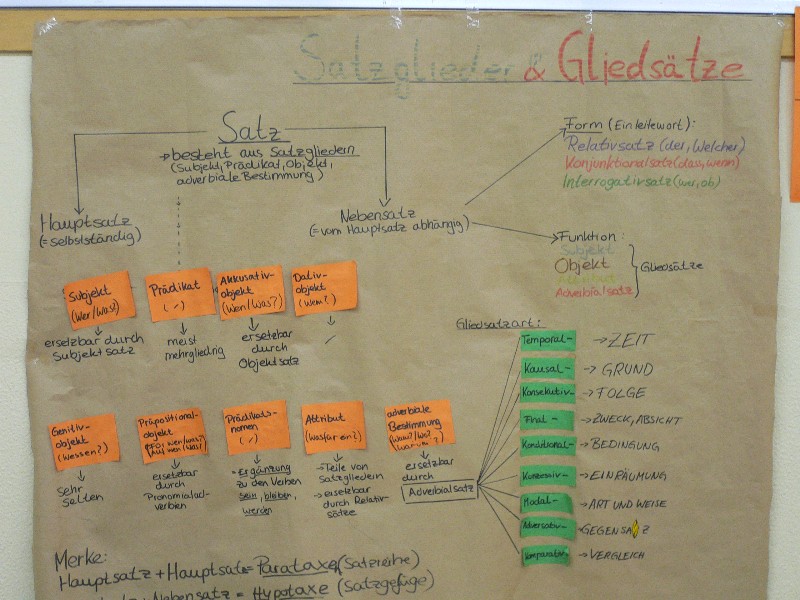 Satzglieder & Gliedsätze
Satz
→ besteht aus Satzgliedern
(Subjekt, Prädikat, Objekt,
adverbiale Bestimmung)
Hauptsatz
(=selbstständig)
Nebensatz
(=vom Hauptsatz abhängig)
Form (Einleitewort):
Relativsatz (der, Welcher)
Konjunktionalsatz (dass, wenn)
Interrogativsatz (wer, ob)
Funktion:
Subjekt
Objekt
Attribut
Adverbialsatz
Gliedsätze
Subjekt
(Wer/Was?)
ersetzbar durch
Subjektsatz
Prädikat
(✓)
meist
mehrgliedrig
Akkusativ-
objekt
(Wen/Was?)
ersetzbar
durch
Objektsatz
Dativ-
objekt
(Wem?)
✓
Genitiv-
objekt
(Wessen?)
sehr
selten
Präpositional-
objekt
(Für wen/was?
Auf wen/was?)
ersetzbar
durch
Pronomialad-
verbien
Prädikats-
nomen
(✓)
- Ergänzung
zu den Verben
sein, bleiben,
werden
Attribut
(Was für ein?)
- Teile von
Satzgliedern
- ersetzbar
durch Relativ-
sätze
adverbiale
Bestimmung
(Wann? Wo?
Warum?)
ersetzbar
durch
Adverbialsatz
Gliedsatzart:
Temporal- → ZEIT
Kausal- → GRUND
Konsekutiv- → FOLGE
Final- → ZWECK, ABSICHT
Konditional- → BEDINGUNG
Konzessiv- → EINRÄUMUNG
Modal- → ART UND WEISE
Adversativ- → GEGENSATZ
Komparativ- → VERGLEICH
Merke:
Hauptsatz + Hauptsatz = Parataxe (Satzreihe)
Nebensatz = Hypotaxe (Satzgefüge)